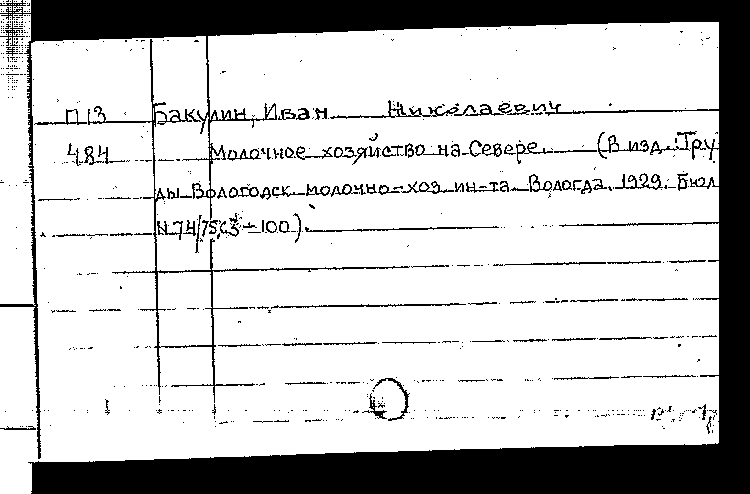 П13 Бакулин, Иван Николаевич
484 Молочное хозяйство на Севере. (В изд. Тру
ды Вологодск. молочно-хоз. ин-та. Вологда, 1929. Бюл
N.74/75, с 3-100).